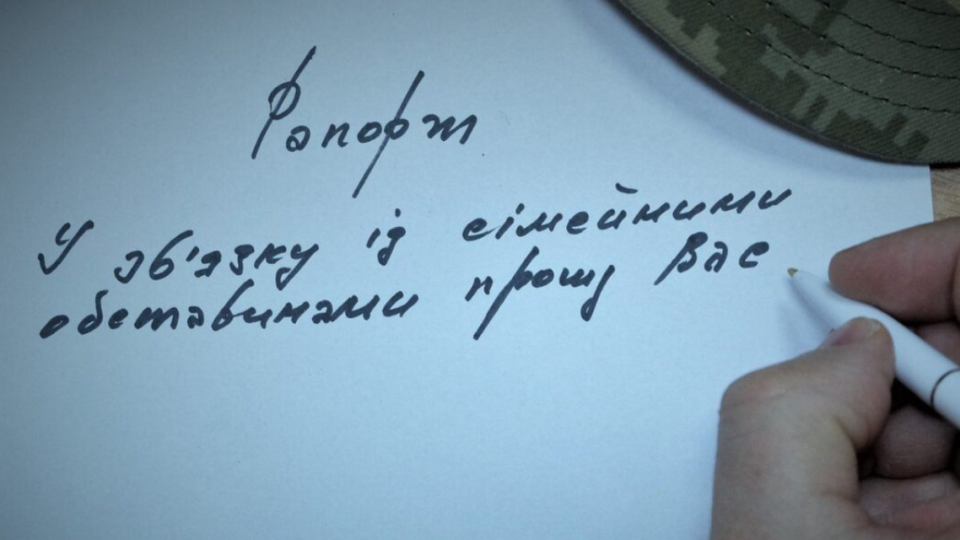 Рапорт
У зв'язку із сімейними
обставинами прошу Вас